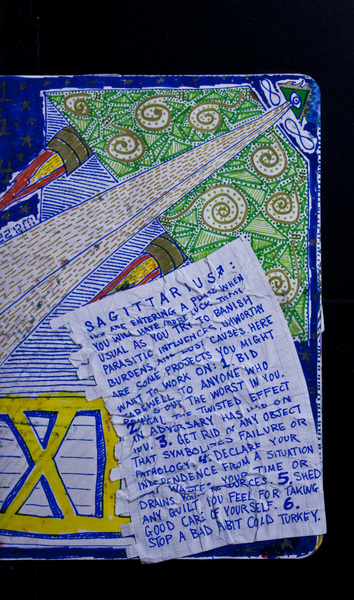 SAGITTARIUS♐:
YOU ARE ENTERING A PHASE WHEN
YOU WILL HAVE MORE LUCK THAN
USUAL AS YOU TRY TO BANISH
PARASITIC INFLUENCES, UNWORTHY
BURDENS, AND LOST CAUSES. HERE
ARE SOME PROJECTS YOU MIGHT
WANT TO WORK ON: 1. BID
FAREWELL TO ANYONE WHO
BRINGS OUT THE WORST IN YOU.
2. THE TWISTED EFFECT
AN ADVERSARY HAS HAD ON
YOU. 3. GET RID OF ANY OBJECT
THAT SYMBOLIZES FAILURE OR
PATHOLOGY. 4. DECLARE YOUR
INDEPENDENCE FROM A SITUATION
THAT WASTES YOUR TIME OR
DRAINS YOUR RESOURCES. 5. SHED
ANY GUILT YOU FEEL FOR TAKING
GOOD CARE OF YOURSELF. 6.
STOP A BAD HABIT COLD TURKEY.
X